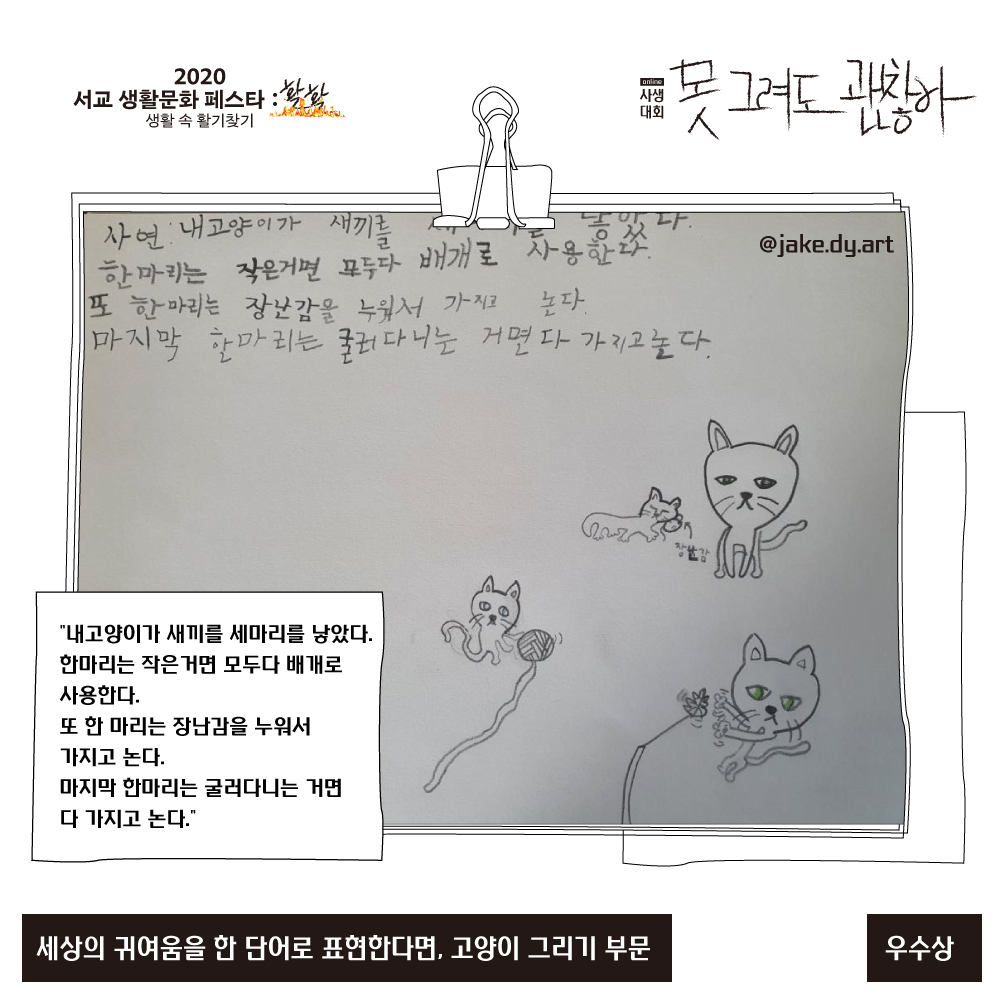 2020
서교 생활문화 페스타 : 활활
생활 속 활기찾기
online
사생
대회
못 그려도 괜찮아
@jake.dy.art
사연: 내고양이가 새끼를 낳았다.
한마리는 작은거면 모두다 배개로 사용한다.
또 한마리는 장난감을 누워서 가지고 논다.
마지막 한마리는 굴러다니는 거면 다 가지고논다.
장난감
"내고양이가 새끼를 세마리를 낳았다.
한마리는 작은거면 모두다 배개로
사용한다.
또 한 마리는 장난감을 누워서
가지고 논다.
마지막 한마리는 굴러다니는 거면
다 가지고 논다."
세상의 귀여움을 한 단어로 표현한다면, 고양이 그리기 부문
우수상